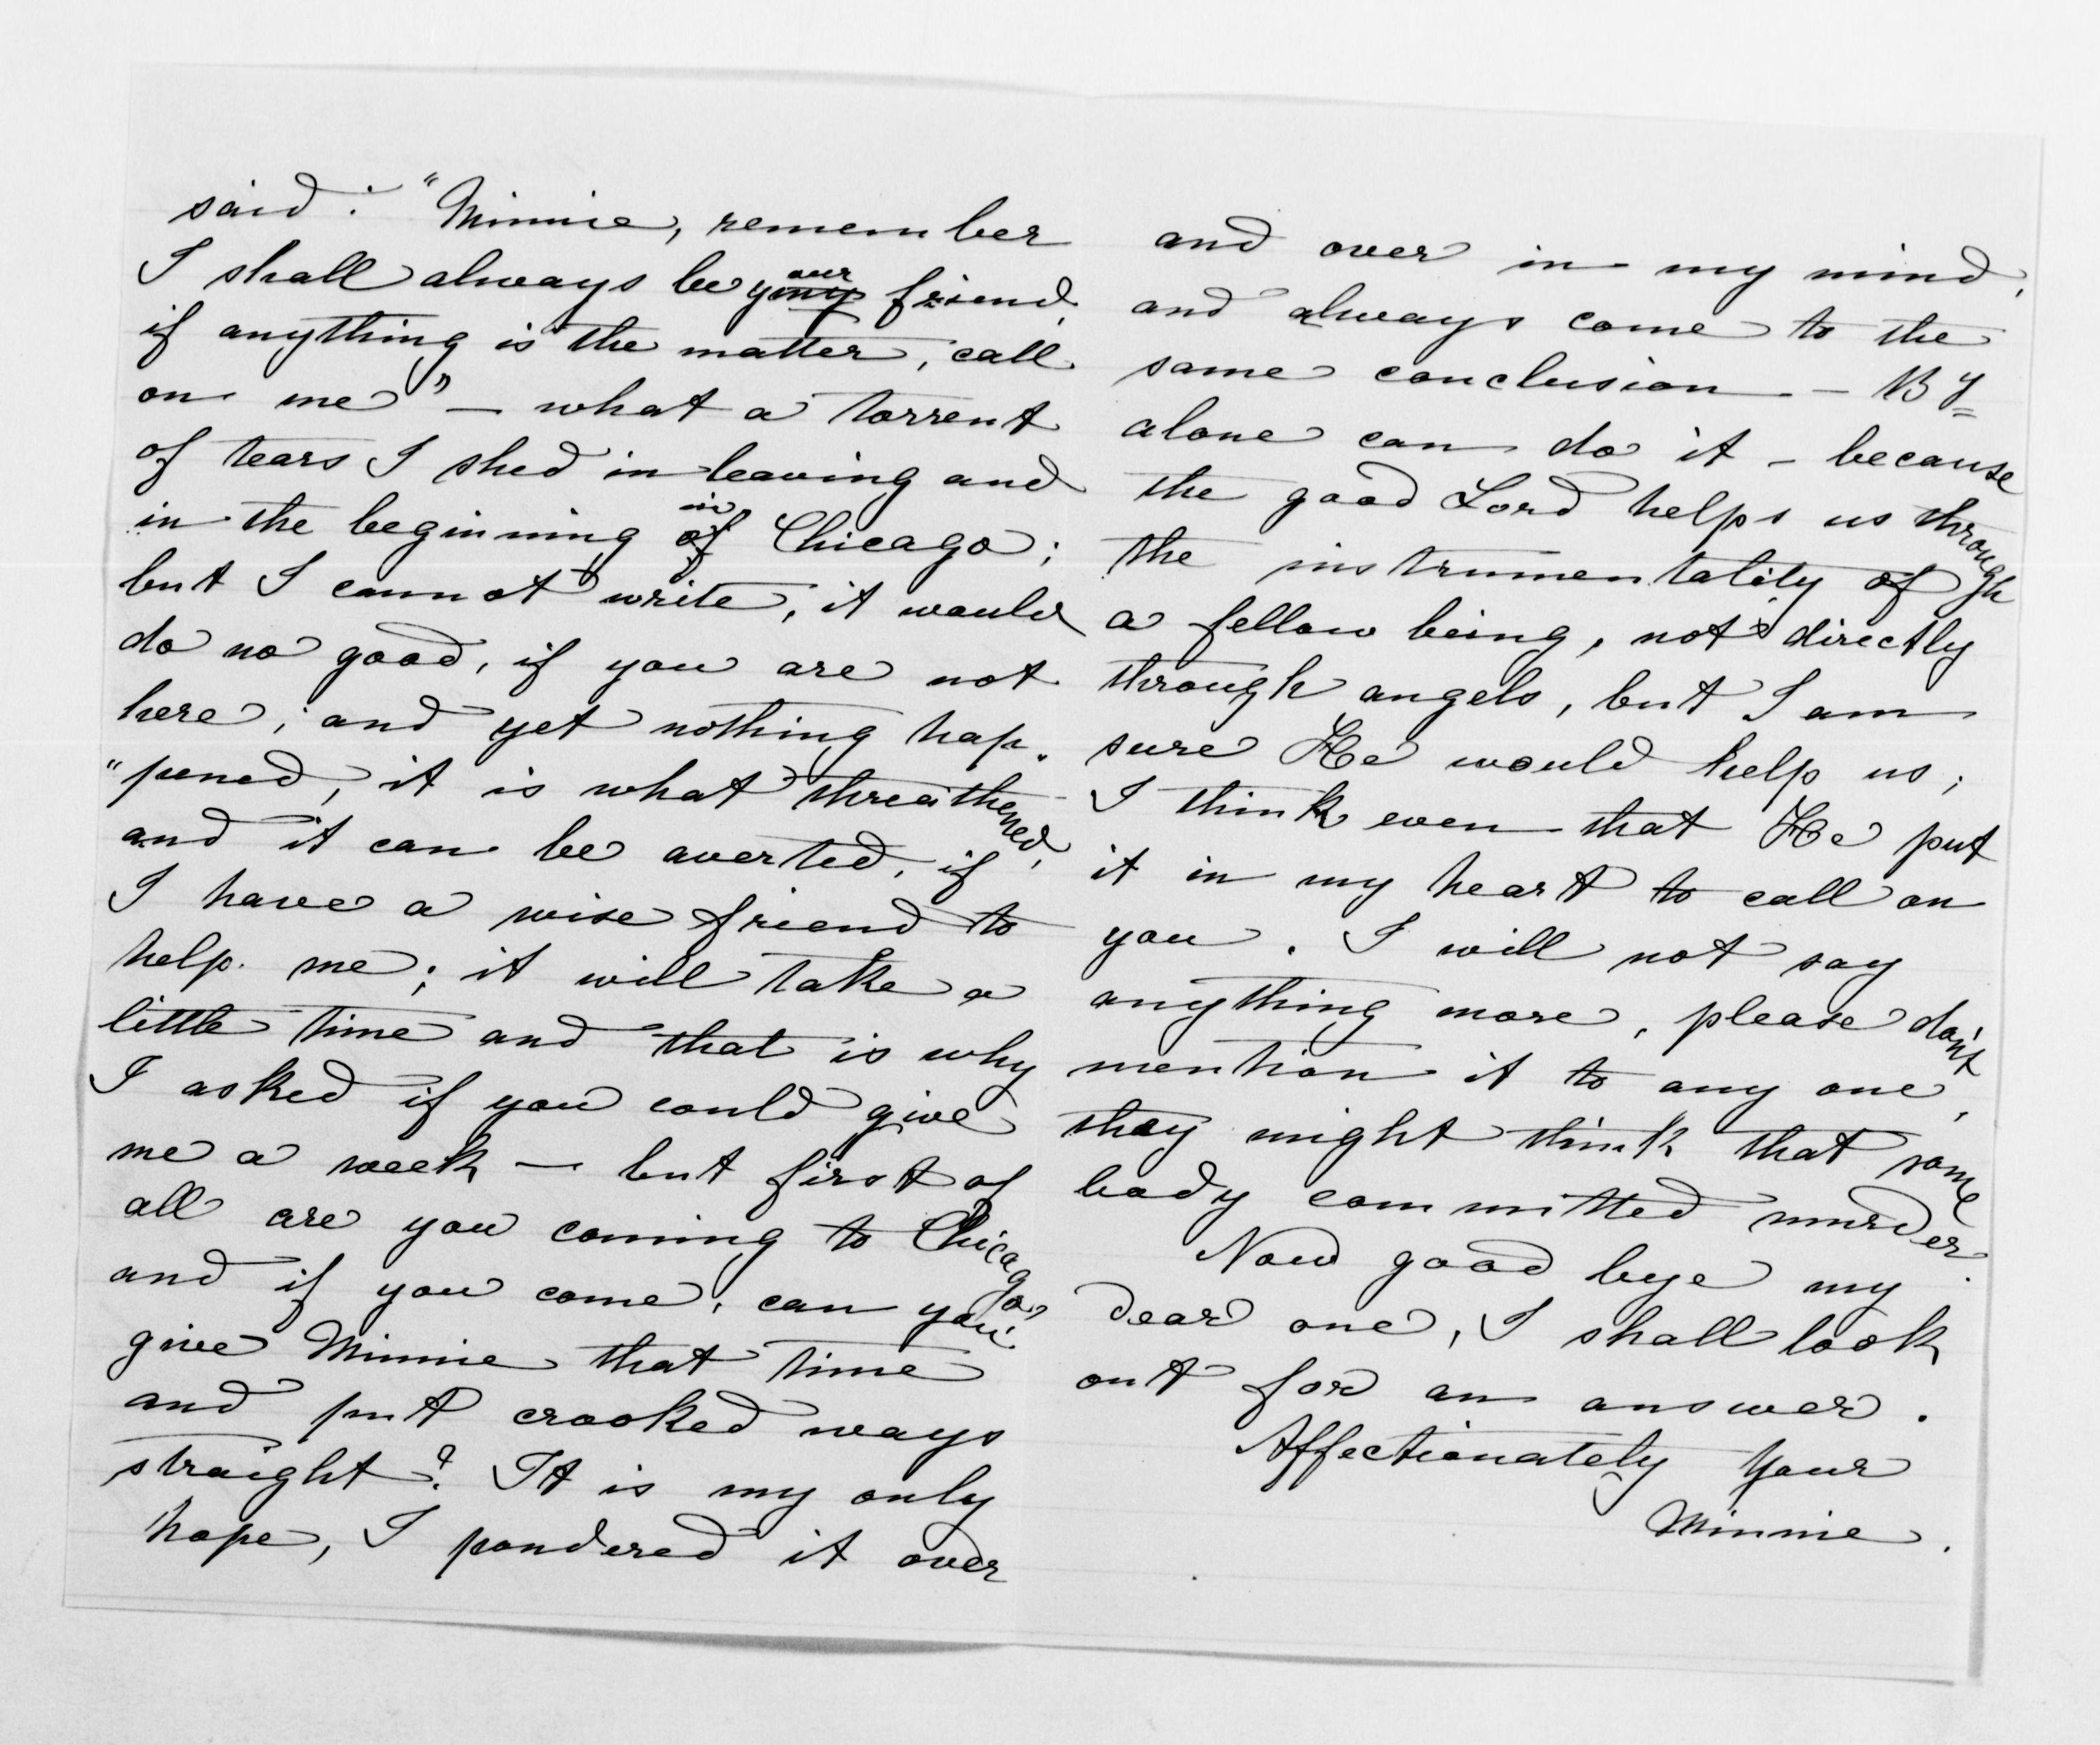 said: "Minnie, remember
I shall always be your friend,
if anything is the matter, call
on me" — what a torrent
of tears I shed in leaving and
in the beginning in Chicago;
but I cannot write, it would
do no good, if you are not
here; and yet nothing hap-
"pened, it is what threathened,
and it can be averted, if
I have a wise friend to
help me; it will take a
little time and that is why
I asked if you could give
me a week — but first of
all are you coming to Chicago,
and if you come, can you
give Minnie that time
and put crooked ways
straight? It is my only
hope, I pondered it over
and over in my mind,
and always come to the
same conclusion — By
alone can do it — because
the good Lord helps us through
the instrumentality of
a fellow being, not directly
through angels, but I am
sure He would help us;
I think even that He put
it in my heart to call on
you. I will not say
anything more, please don't
mention it to any one,
they might think that some
body committed murder.
Now good bye my
dear one, I shall look
out for an answer.
Affectionately your
Minnie.